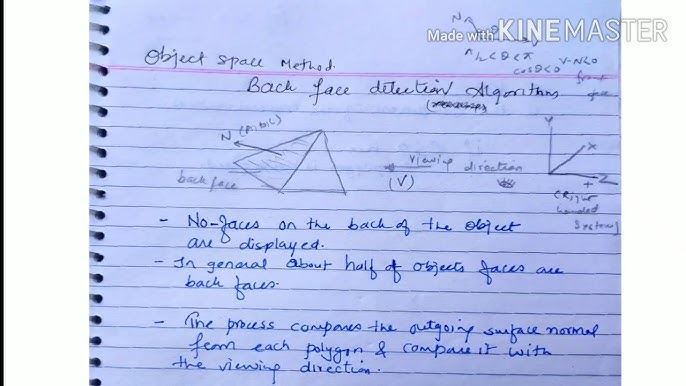 Made with KINEMASTER
N
π/2<θ<π
cosθ<0 V-N<0
front
face
Object space Method.
Back face detection Algorithms
N (A,B,C)
back face
viewing direction
(V)
Y
X
Z
+
(Right
handed
System)
- No-faces on the back of the object
are displayed.
- In general about half of objects faces are
back faces.
- The process compares the outgoing surface normal
from each polygon & compare it with
the viewing direction.